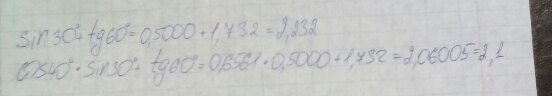 sin30°+tg60°=0,5000+1,732=2,232
cos40°·sin30°+tg60°=0,6561·0,5000+1,732=2,06005=2,1